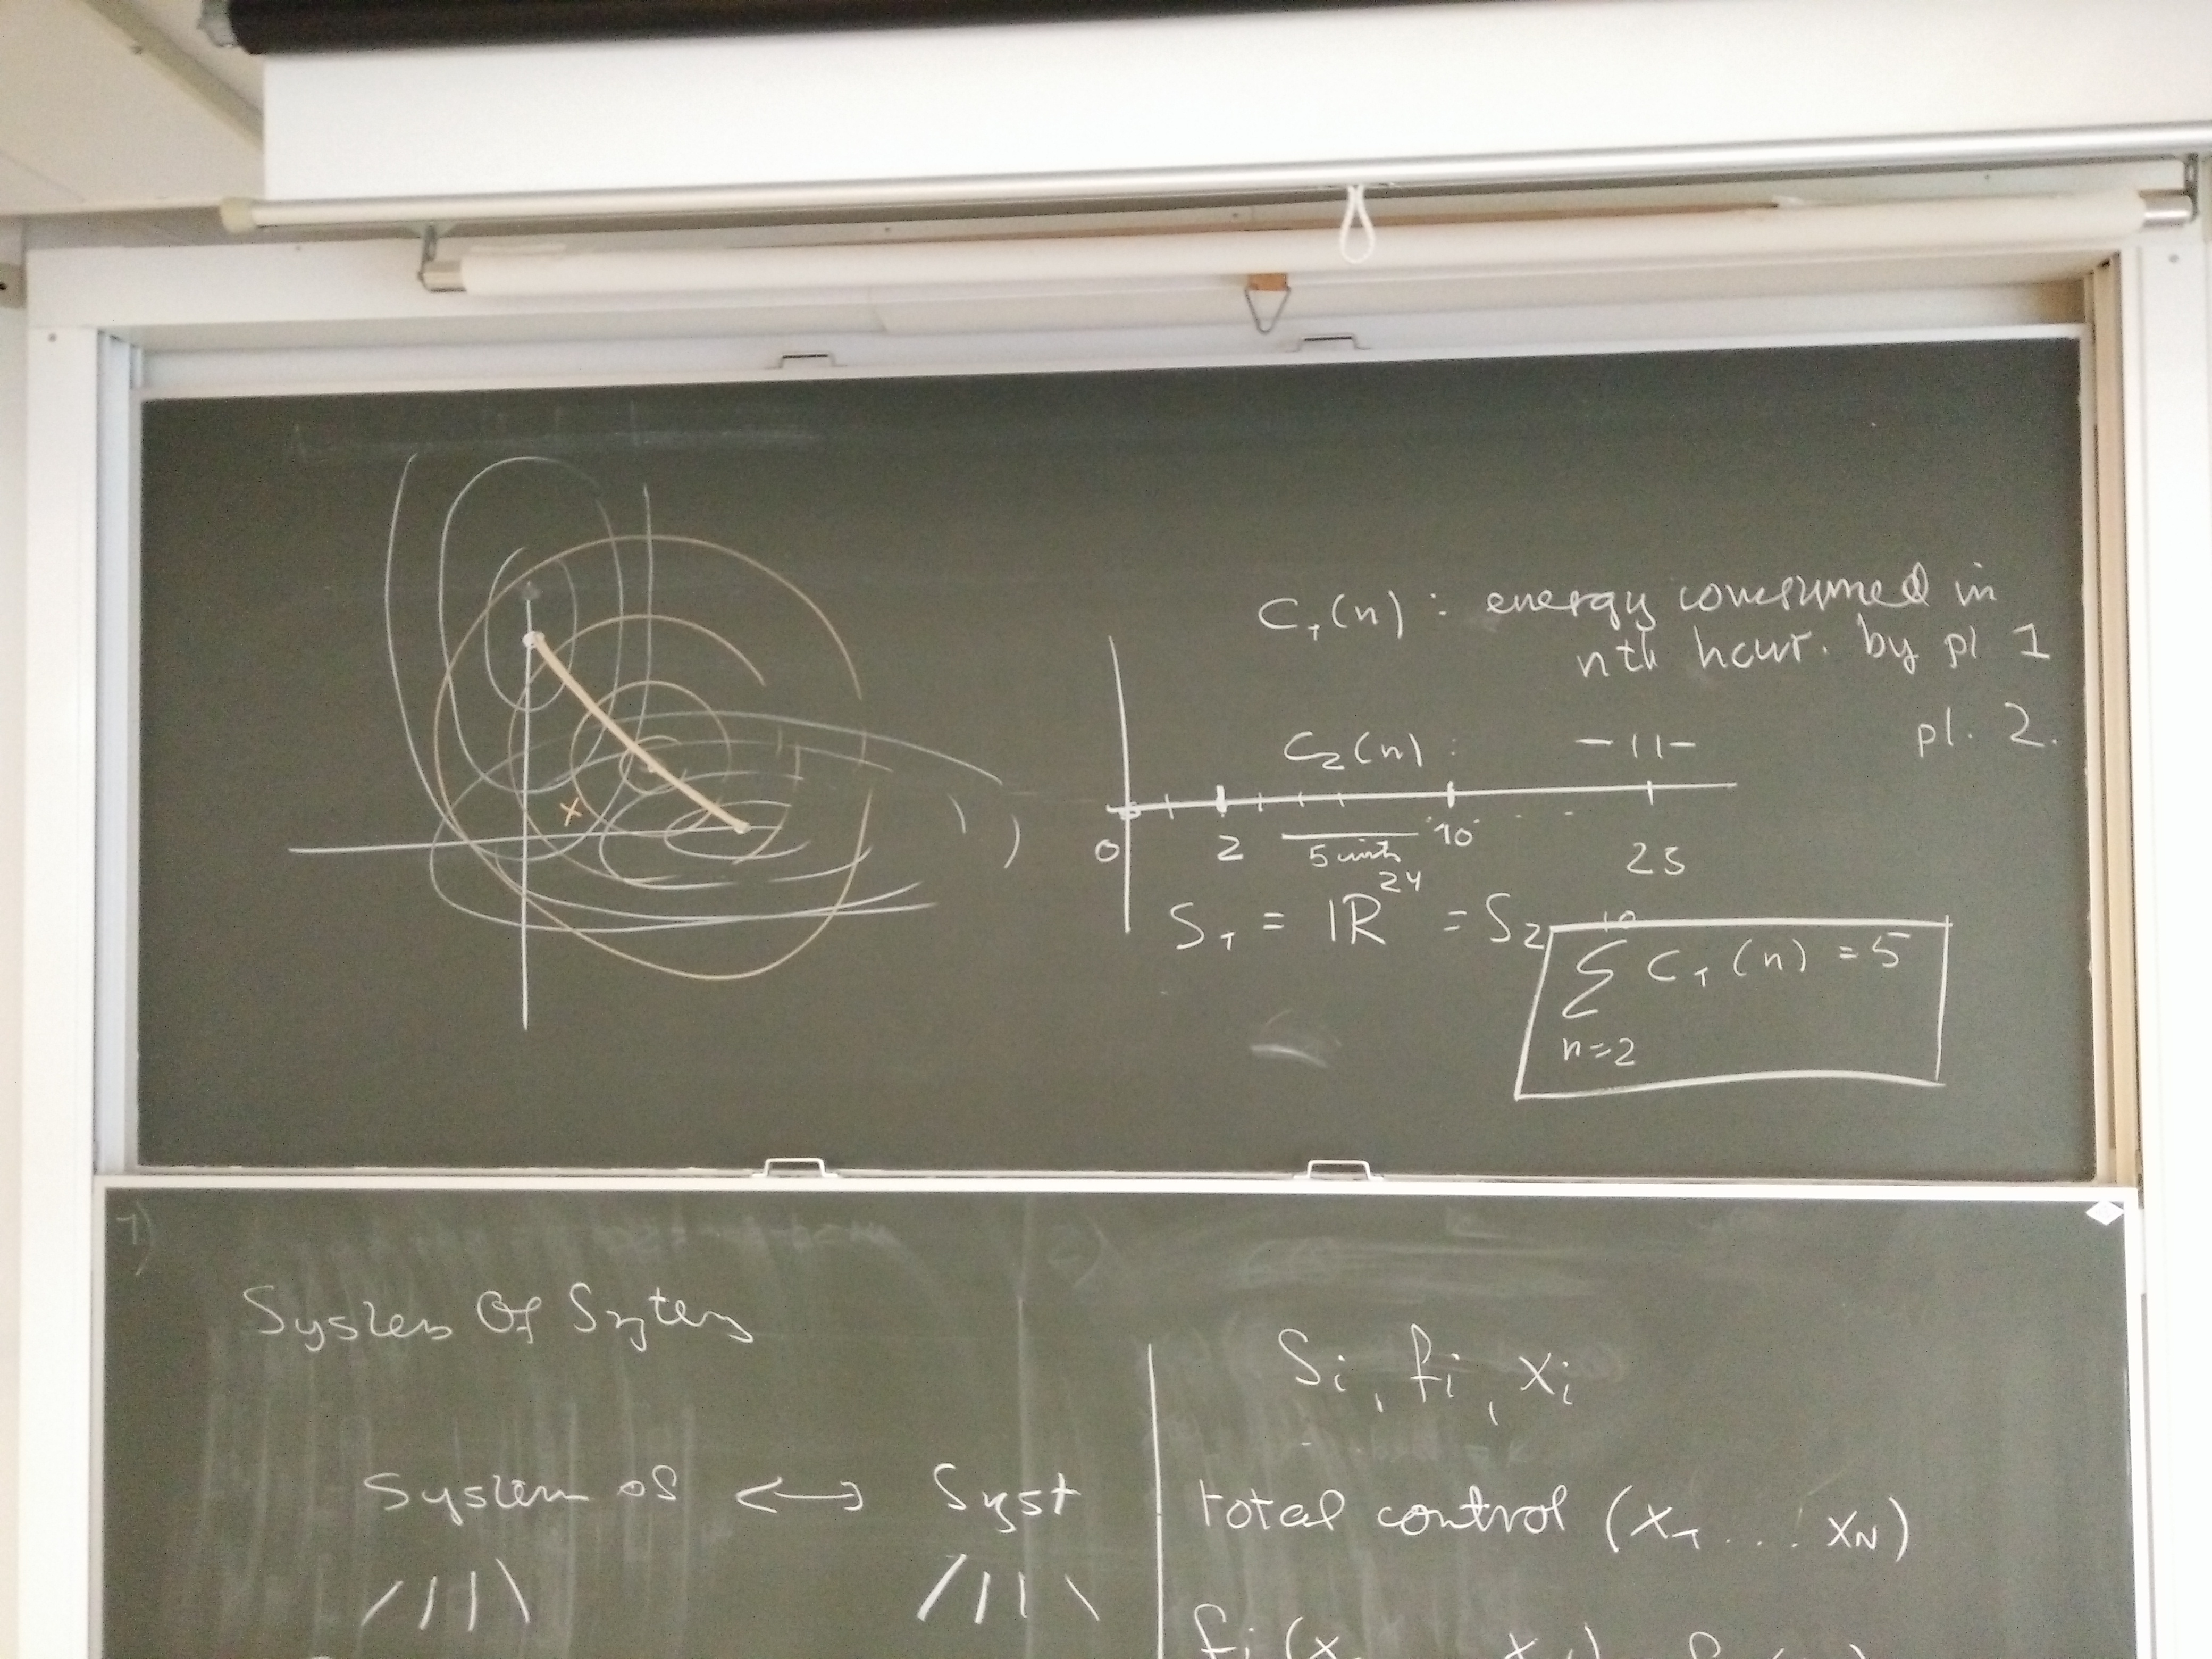 C₁(n) : energy consumed in
nth hour. by pl 1
C₂(n) : -11- pl. 2.
0 2 10 23
5 units
S₁ = ℝ²⁴ = S₂
10
∑ C₁(n) = 5
n=2
1)
2)
System Of Sytem
System OS <-> Syst
Si, fi, xi
total control (x₁ ... xN)